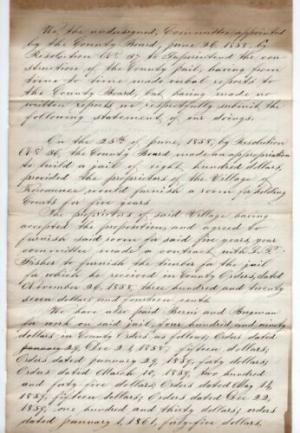 We the undersigned, Committee appointed
by the County Board, June 26, 1858, by
Resolution No 27 to Superintend the con
struction of the County jail, having from
time to time made verbal reports to
the County Board, but having made no
written report, we respectfully submit the
following statement of our doings.
On the 25th of June, 1858, by Resolution
No 26, the County Board, made an appropriation
to build a jail of eight hundred dollars,
provided the proprietors of the Village of
would furnish a room for holding
Courts for five years
The proprietors of said Village having
accepted the propositions and agreed to
furnish said room for said five years, your
committee made a contract, with
Fisher to furnish the timber for the jail
for which he received in County Orders, dated
November 26, 1858, three hundred and twenty
seven dollars and fourteen cents
We have also paid and
for work on said jail, four hundred and ninety
dollars in County Orders, as follows, Orders dated
January Dec 21 1858, fifteen dollars;
Orders dated January 29, 1859, forty dollars;
Orders dated March 10, 1859, two hundred
and forty five dollars; Orders dated May 14,
1859, fifteen dollars; Orders dated Dec 22,
1859, one hundred and thirty dollars; orders
dated January 1, 1861, forty-five dollars.